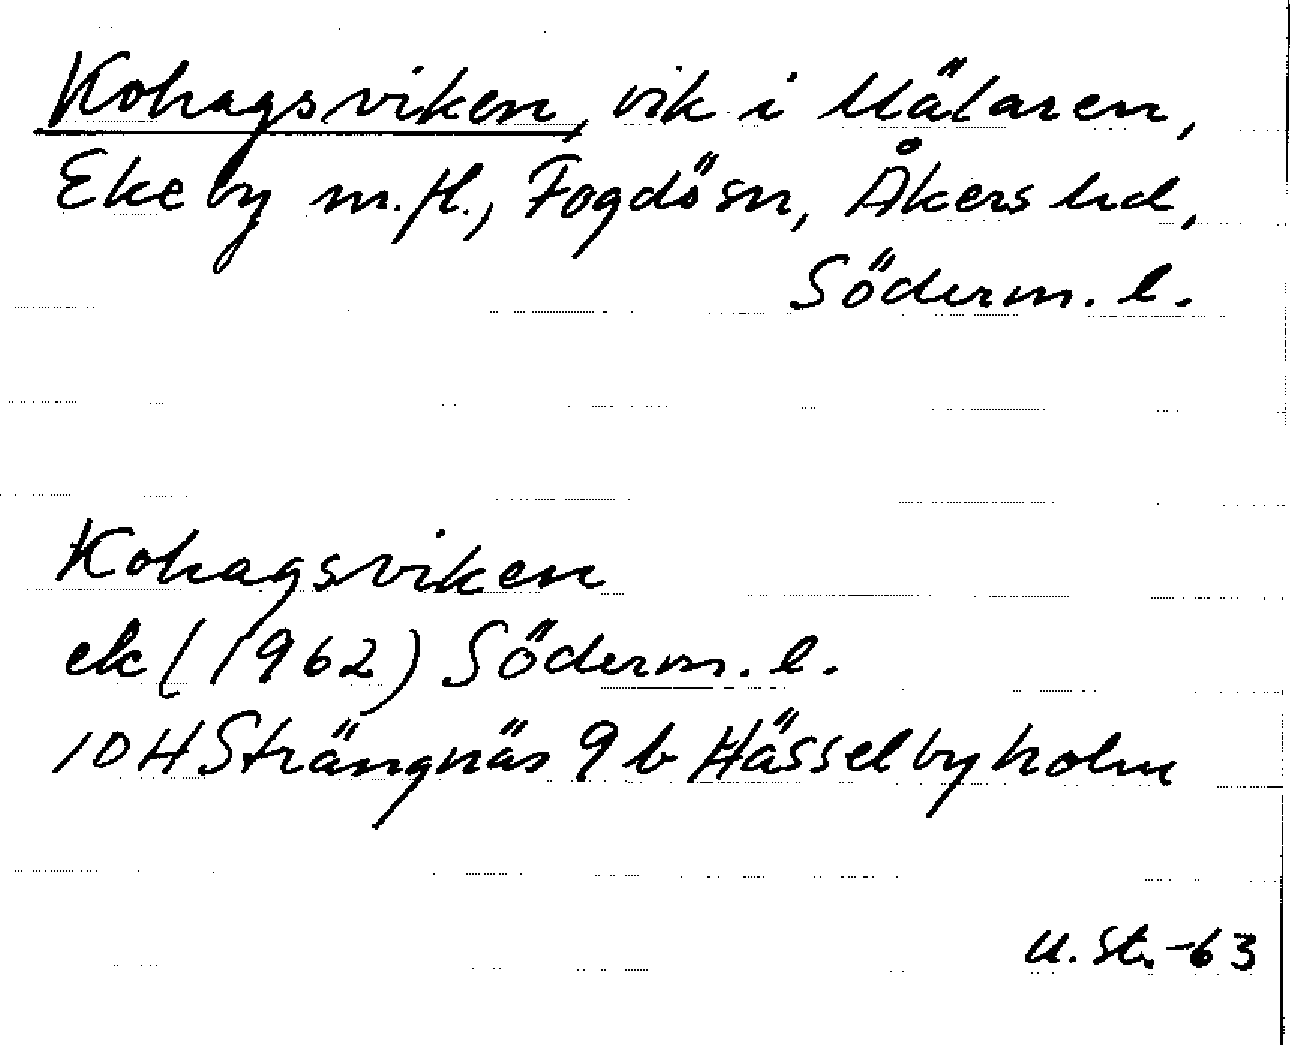 Kohagsviken, vik i Mälaren,
Ekeby m.fl., Fogdö sn, Åkers hd,
Söderm. l.
Kohagsviken
ek (1962) Söderm. l.
10H Strängnäs 9 b Hässelbyholm
U. St. -63